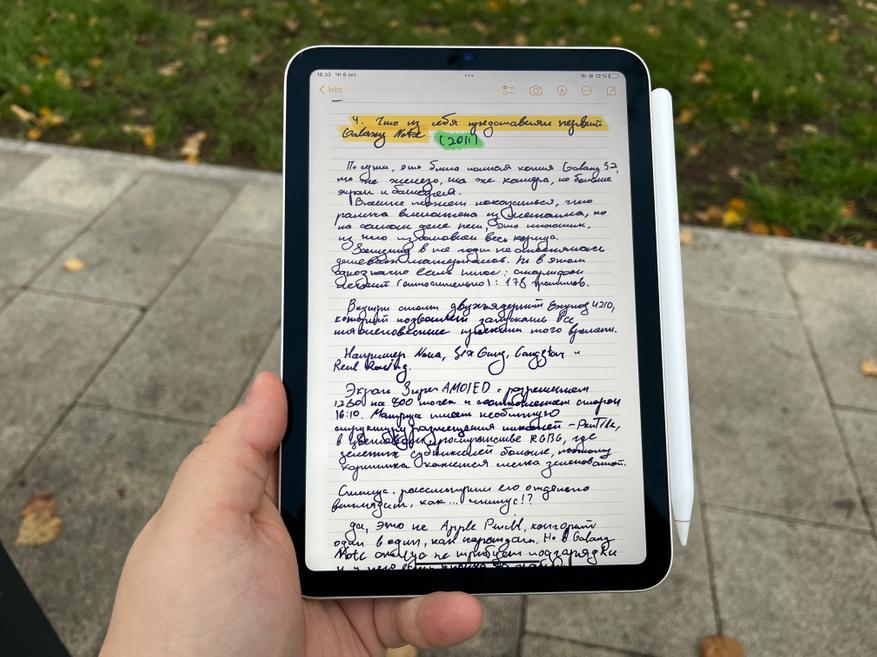 16:33 Чт 6 окт.
12 %
lxbt
4. Что из себя представлял первый
Galaxy Note (2011)
По сути, это была полная копия Galaxy S2,
то же железо, та же камера, но больше
экран и батарея.
Внешне может показаться, что
рамка выполнена из металла, но
на самом деле нет, это пластик,
из него изготовлен весь корпус.
в те годы не
дешевых материалов. Но в этом
однозначно есть плюс: смартфон
(относительно): 178 граммов.
Внутри стоит двухъядерный Exynos 4210,
который позволяет запускать все
проекты того времени.
Например Nova, Six Guns, Gangstar и
Real Racing.
Экран Super AMOLED с разрешением
1280 на 800 точек и соотношением сторон
16:10. Матрица имеет необычную
структуру размещения пикселей - PenTile,
в цветовом пространстве RGBG, где
зеленых субпикселей больше, поэтому
картинка кажется слегка зеленоватой.
Стилус. рассмотрим его отдельно
выглядит, как... стилус!?
да, это не Apple Pencil, который
один в один, как карандаш. Но в Galaxy
Note стилус не требует подзарядки
и у него есть кнопка